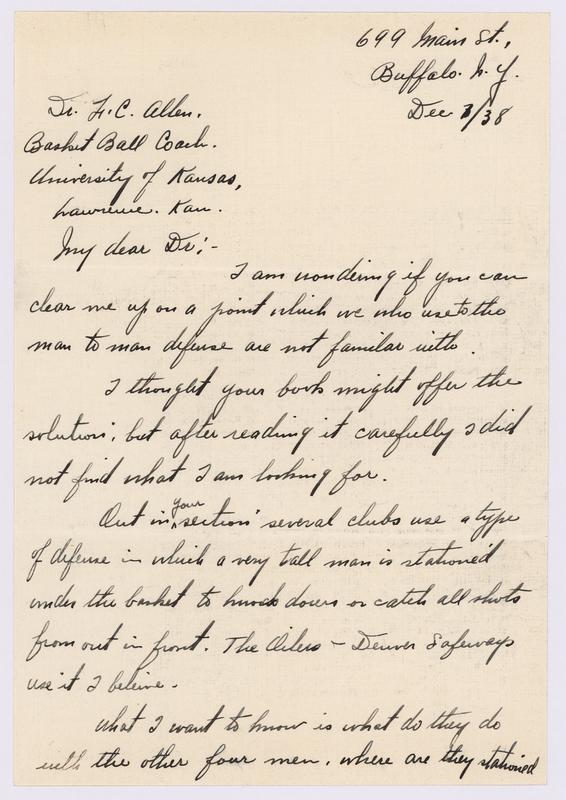 699 Main St.,
Buffalo. N. Y.
Dec 7/38
Dr. F. C. Allen.
Basket Ball Coach.
University of Kansas,
Lawrence. Kan.
My dear Dr:-
I am wondering if you can
clear me up on a point which we who use the
man to man defense are not familar with.
I thought your book might offer the
solution, but after reading it carefully I did
not find what I am looking for.
Out in your section several clubs use a type
of defense in which a very tall man is stationed
under the basket to knock down or catch all shots
from out in front. The Oilers - Denver Safeways
use it I beleive.
What I want to know is what do they do
with the other four men, where are they stationed